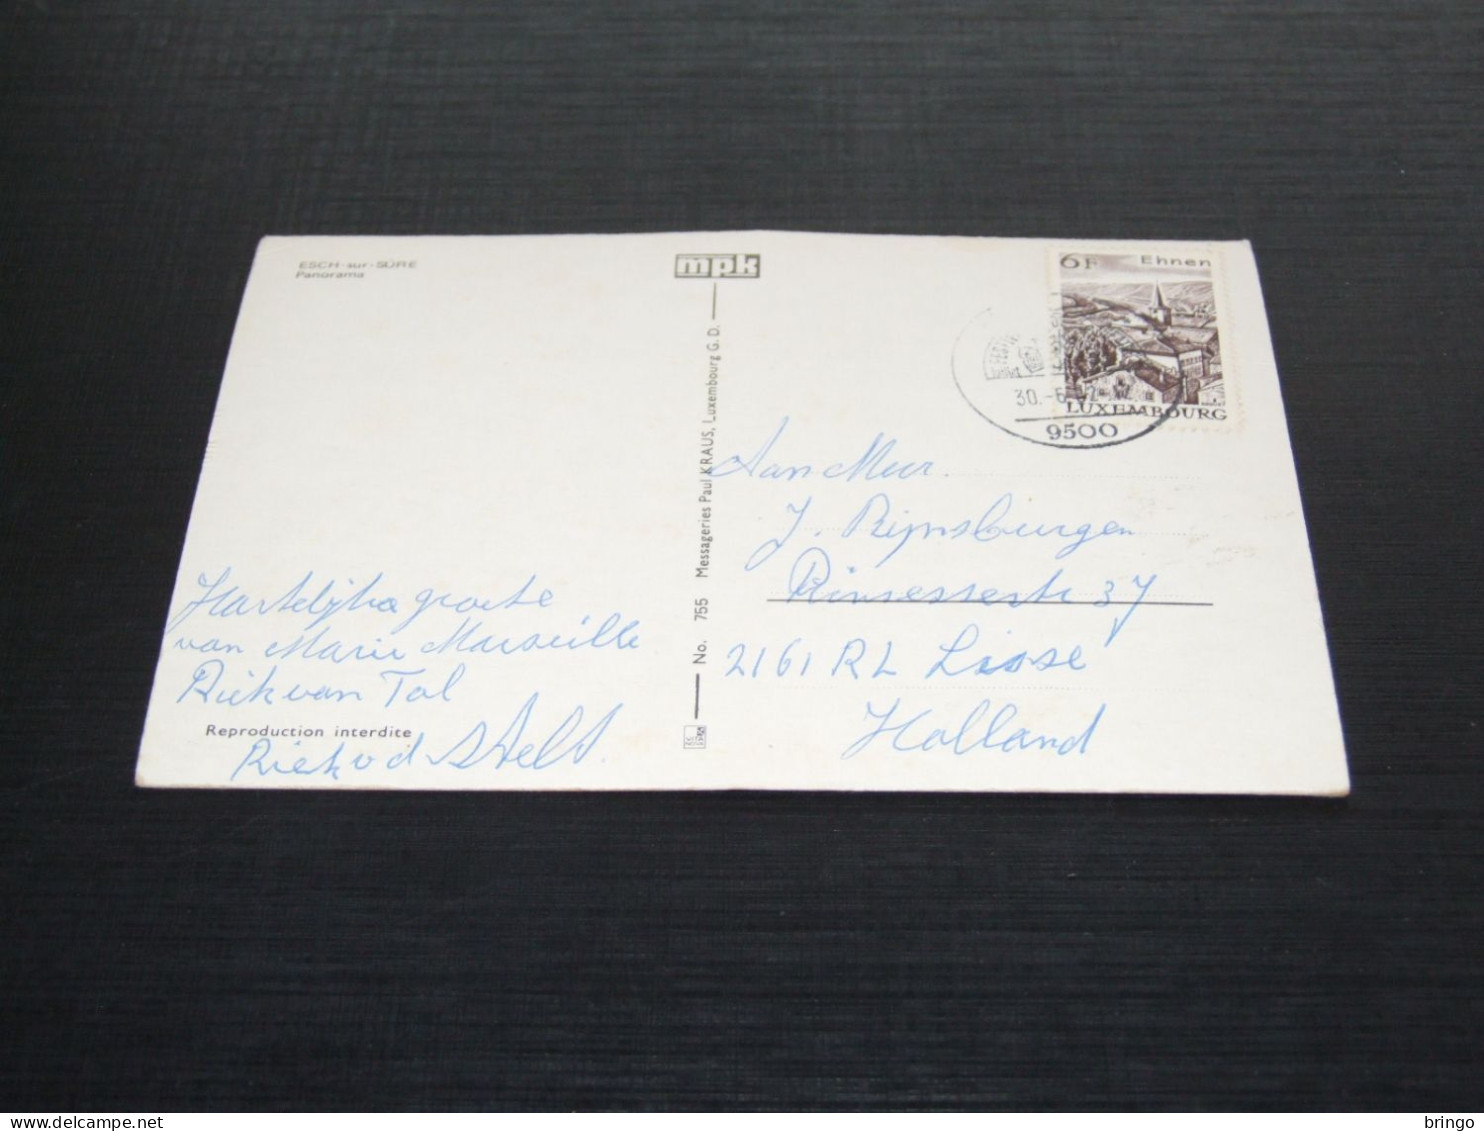 ESCH-sur-SÛRE
Panorama
mpk
6F Ehnen
LUXEMBOURG
30.-6.
9500
No. 755 Messageries Paul KRAUS, Luxembourg G.D.
Aan Meur.
J. Rijnsburgen
Prinsessestr 37
2161 RL Lisse
Holland
Hartelijke groete
van Marie Marseille
Riek van Tol
Reproduction interdite
Riek v d
bringo